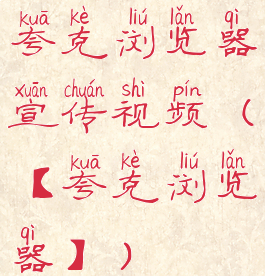 kuā kè liú lǎn qì
夸克浏览器
xuān chuán shì pín
宣传视频（
kuā kè liú lǎn
【夸克浏览
qì
器】）